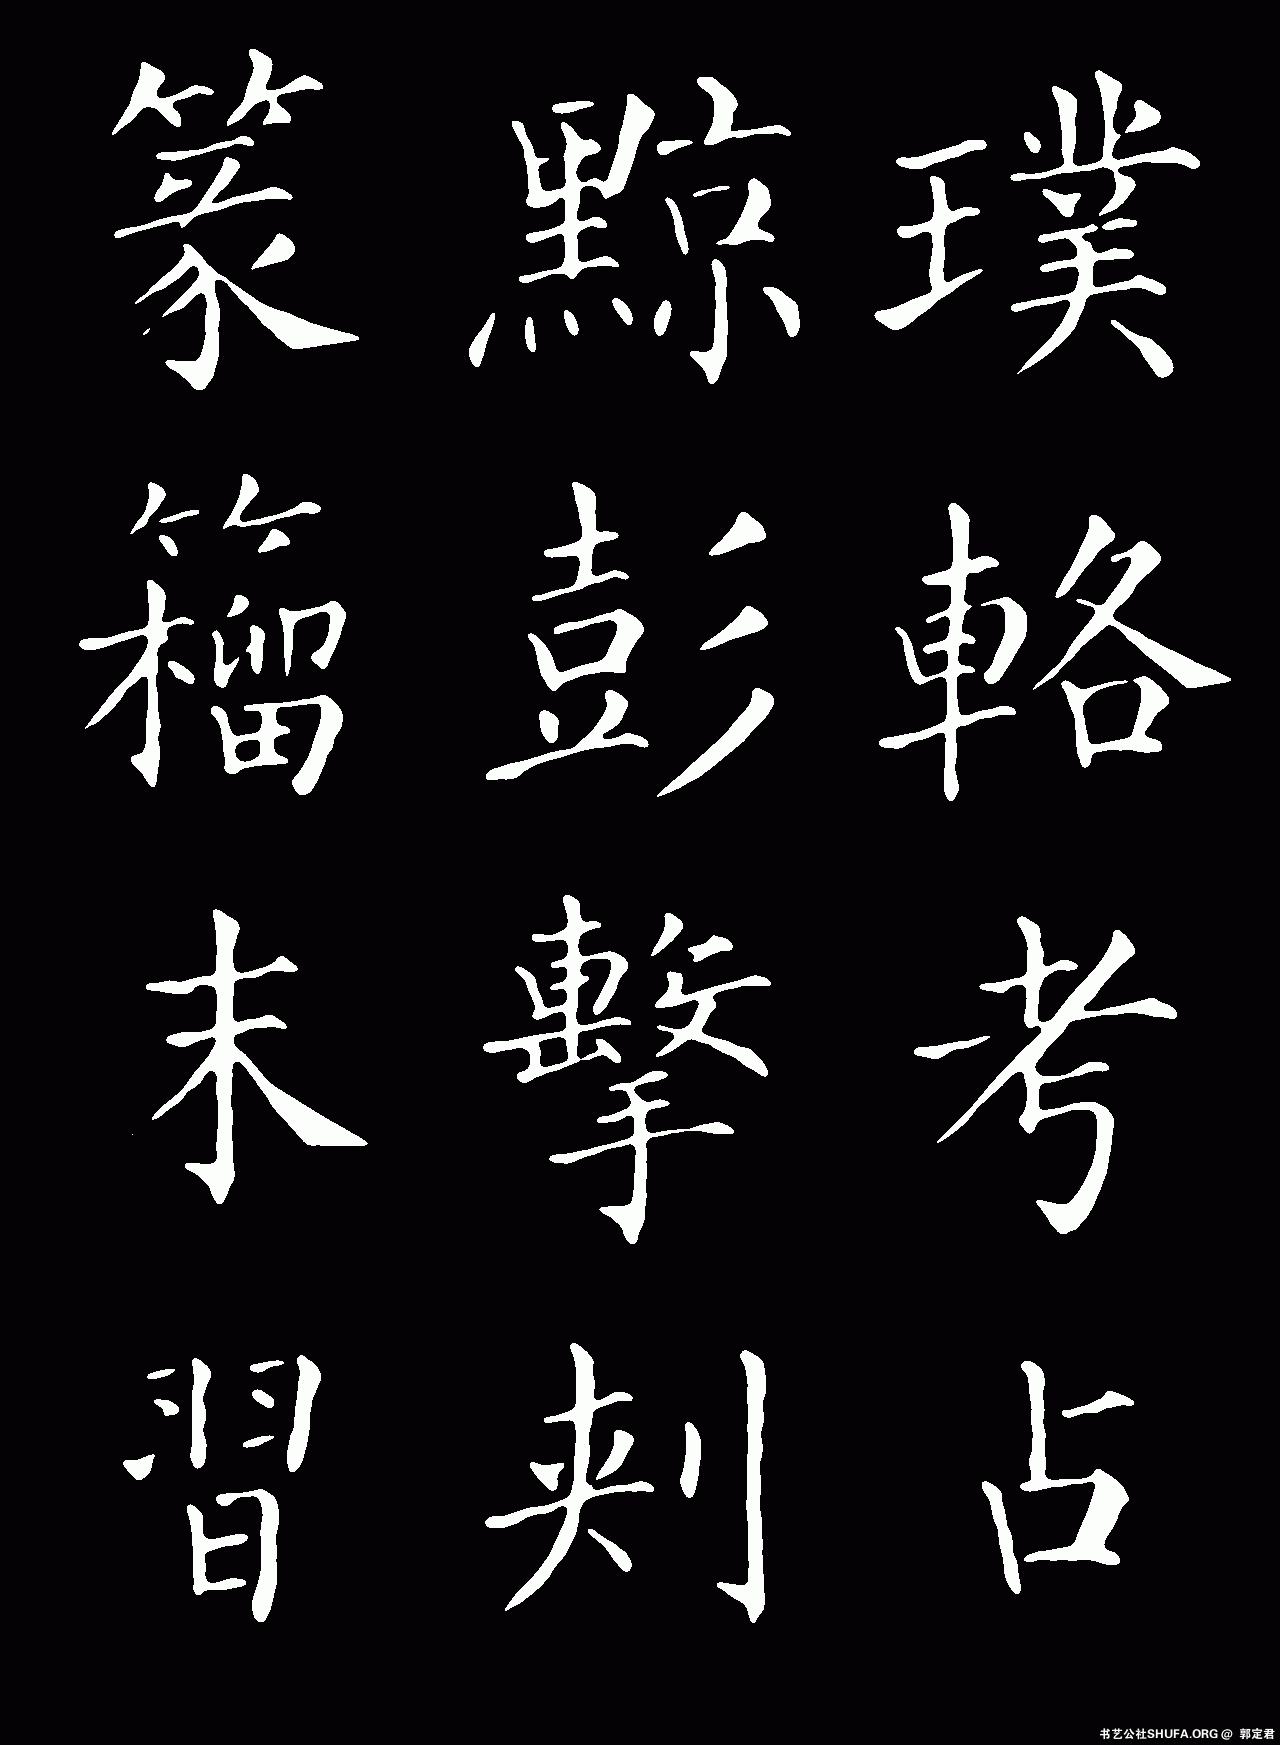 璞輅考占
黥彭擊刾
篆籀末習
书艺公社SHUFA.ORG @ 郭定君